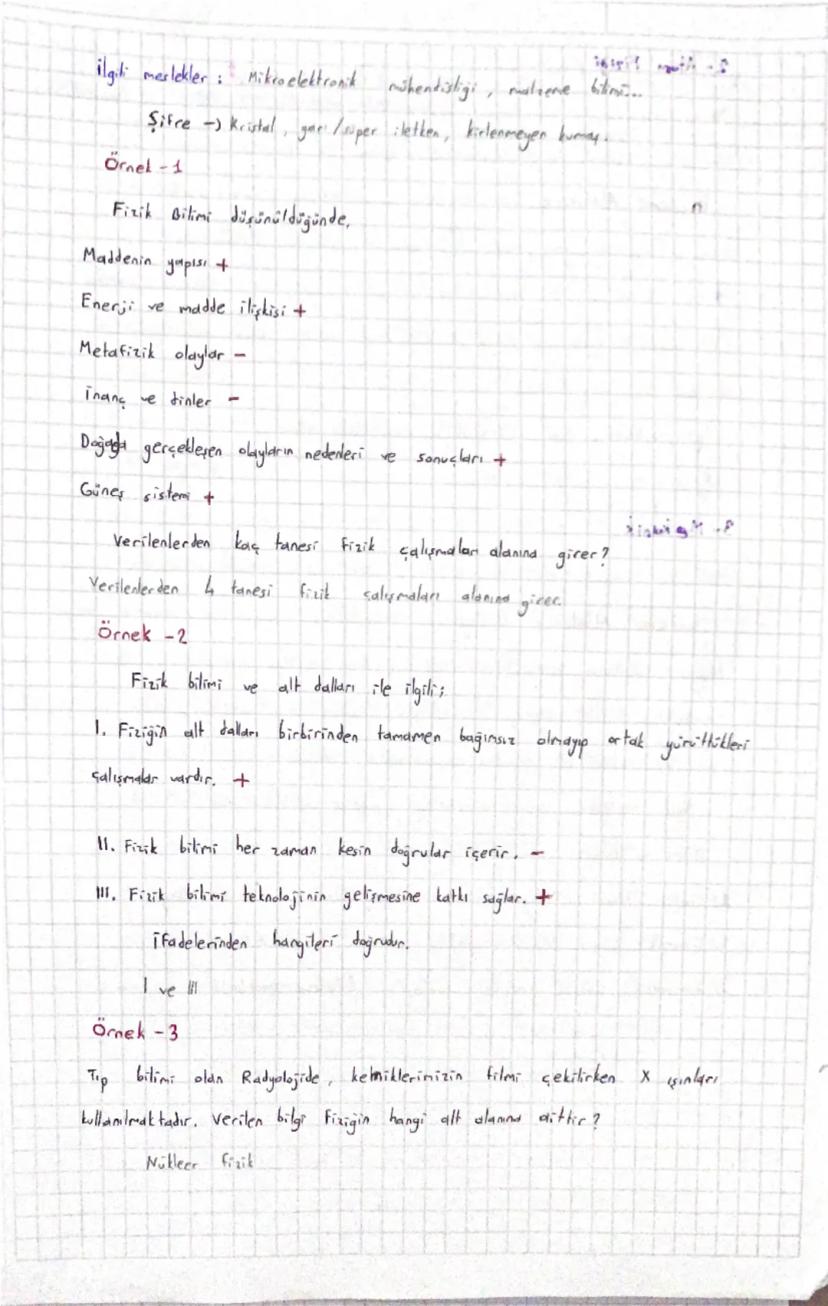 İlgili meslekler : Mikroelektronik mühendisliği, malzeme bilimi...
Şifre -> Kristal, yarı/süper iletken, kirlenmeyen kumaş.
Örnek - 1
Fizik Bilimi düşünüldüğünde,
Maddenin yapısı +
Enerji ve madde ilişkisi +
Metafizik olaylar -
İnanç ve dinler -
Doğada gerçekleşen olayların nedenleri ve sonuçları +
Güneş sistemi +
Verilenlerden kaç tanesi fizik çalışmaları alanına girer?
Verilenlerden 4 tanesi fizik çalışmaları alanına girer.
Örnek - 2
Fizik bilimi ve alt dalları ile ilgili;
I. Fiziğin alt dalları birbirinden tamamen bağımsız olmayıp ortak yürüttükleri
çalışmalar vardır. +
II. Fizik bilimi her zaman kesin doğrular içerir. -
III. Fizik bilimi teknolojinin gelişmesine katkı sağlar. +
ifadelerinden hangileri doğrudur.
I ve III
Örnek - 3
Tıp bilimi olan Radyolojide, kemiklerimizin filmi çekilirken X ışınları
kullanılmaktadır. Verilen bilgi fiziğin hangi alt alanına aittir?
Nükleer fizik